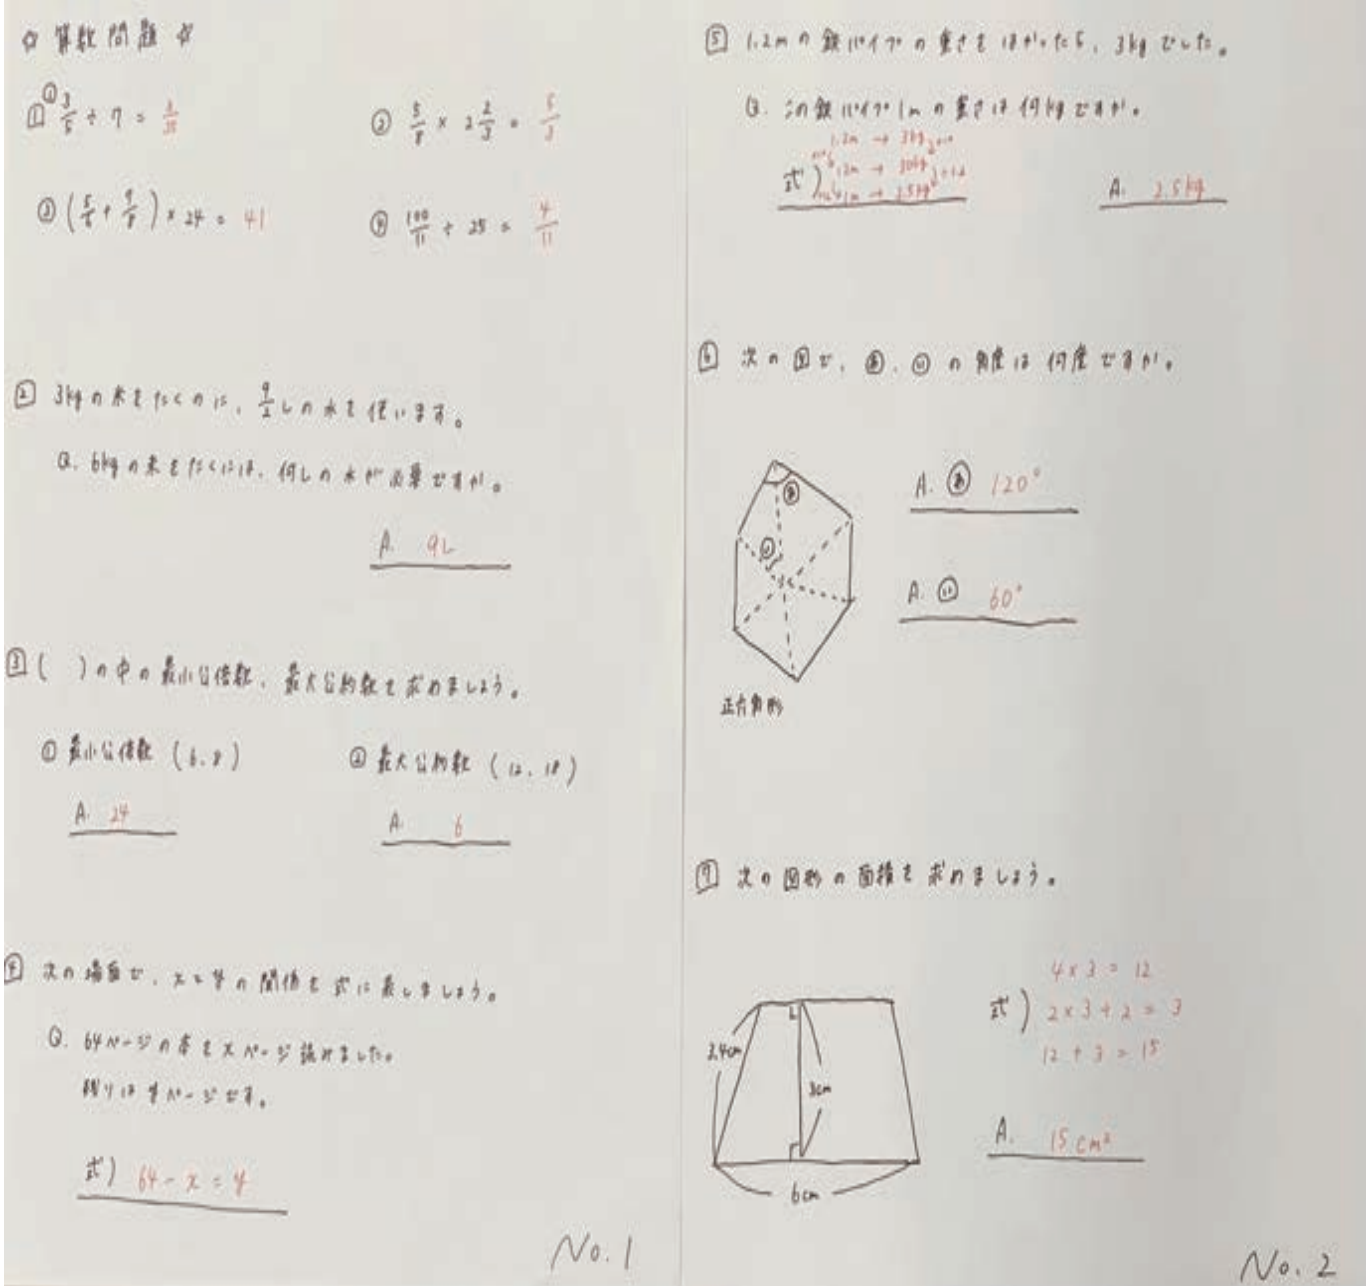 ✩ 算数問題 ✩
1 ① 3/5 ÷ 7 = 3/35
② 5/8 × 2 2/3 = 5/3
③ (5/6 + 9/8) × 24 = 41
④ 100/11 ÷ 25 = 4/11
2 3kgの米をたくのに、9/2Lの水を使います。
Q. 6kgの米をたくには、何Lの水が必要ですか。
A. 9L
3 ( )の中の最小公倍数、最大公約数を求めましょう。
① 最小公倍数 (6.8)
② 最大公約数 (12.18)
A. 24
A. 6
4 次の場面で、xとyの関係を式に表しましょう。
Q. 64ページの本をxページ読みました。
残りはyページです。
式) 64 - x = y
No.1
5 1.2mの鉄パイプの重さをはかったら、3kgでした。
Q. この鉄パイプ1mの重さは何kgですか。
1.2m → 3kg
式) 12m → 30kg ÷12
1m → 2.5kg
A. 2.5kg
6 次の図で、あ、いの角度は何度ですか。
あ
い
A. あ 120°
A. い 60°
正六角形
7 次の図形の面積を求めましょう。
3.4cm
3cm
6cm
4×3=12
式) 2×3÷2=3
12+3=15
A. 15cm²
No.2